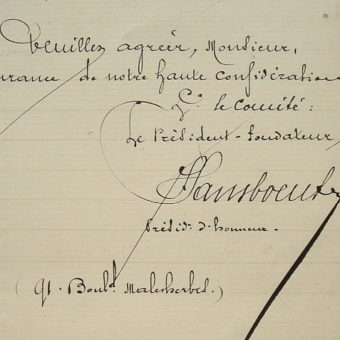 Veuillez agréer, Monsieur,
urance de notre haute considération
P. le Comité:
Le Président-fondateur
Sansboeuf
Présidt d'honneur.
(91. Boult Malesherbes.)